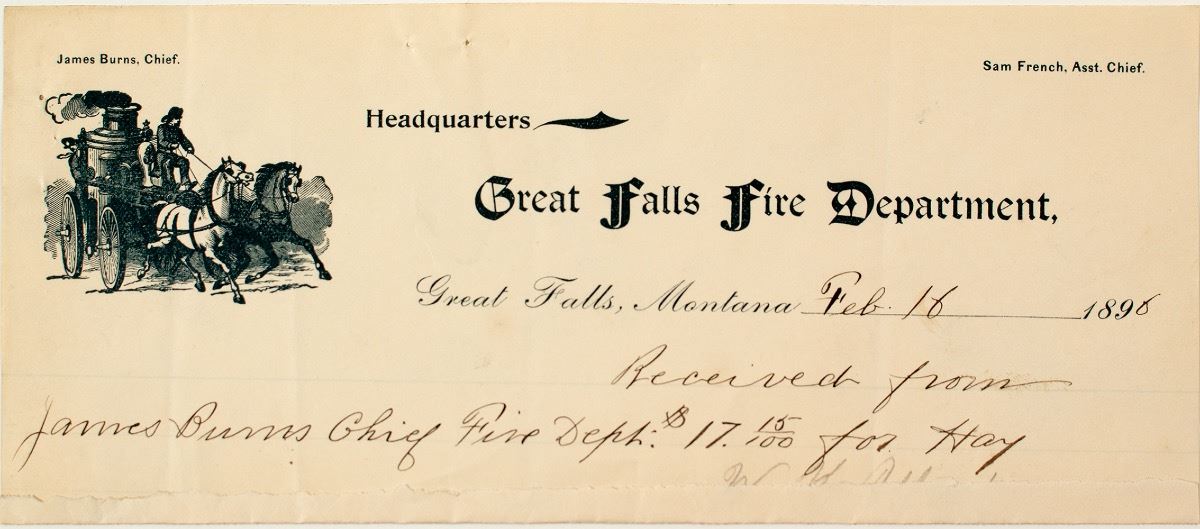 James Burns, Chief.
Sam French, Asst. Chief.
Headquarters
Great Falls Fire Department,
Great Falls, Montana Feb. 16 1896
Received from
James Burns Chief Fire Dept. $ 17. 15/100 for Hay